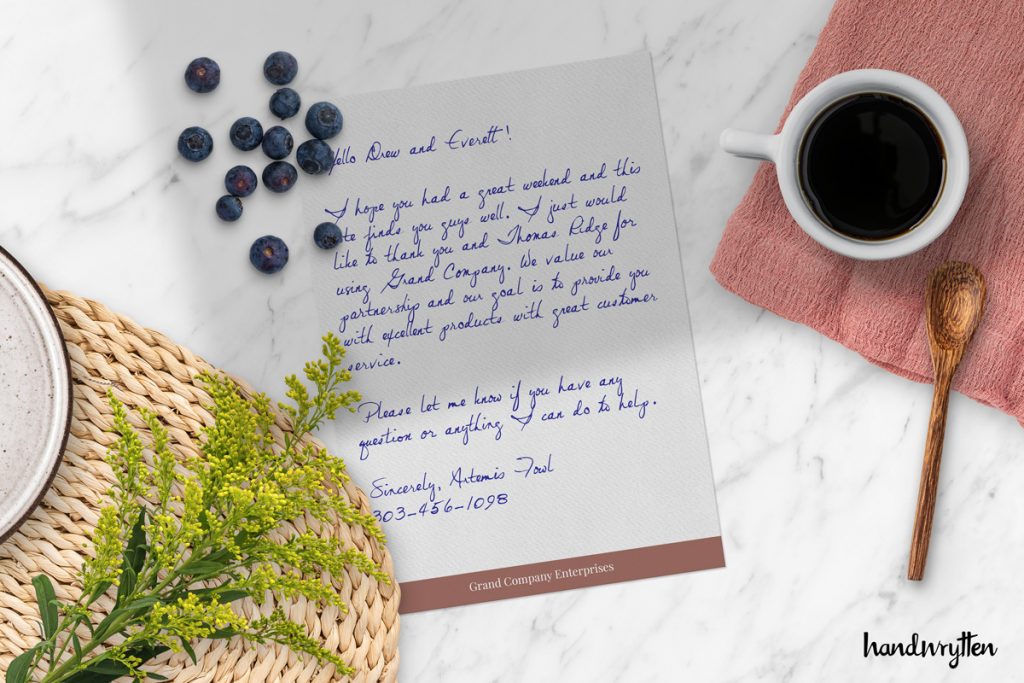 Hello Drew and Everett!
I hope you had a great weekend and this
te finds you guys well. I just would
like to thank you and Thomas Ridge for
using Grand Company. We value our
partnership and our goal is to provide you
with excellent products with great customer
service.
Please let me know if you have any
question or anything I can do to help.
Sincerely, Artemis Fowl
303-456-1098
Grand Company Enterprises
handwrytten